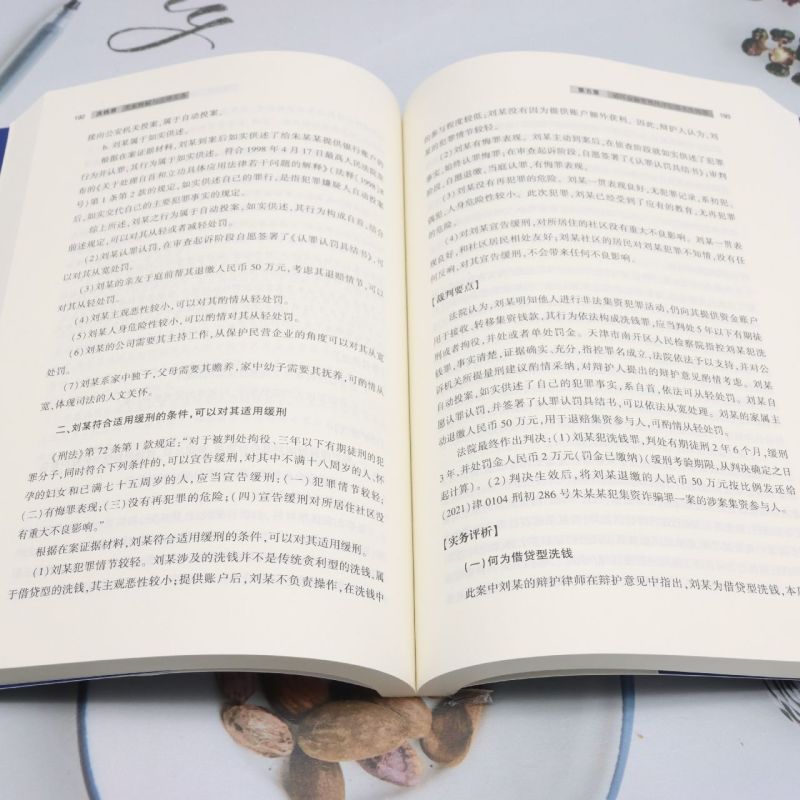 接向公安机关投案,属于自动投案。
b. 刘某属于如实供述。
根据在案证据材料,刘某到案后如实供述了给朱某某提供银行账户的
行为并认罪,其行为属于如实供述。符合1998年4月17日最高人民法院发
布的《关于处理自首和立功具体应用法律若干问题的解释》(法释〔1998〕8
号)第1条第2款的规定,如实供述自己的罪行,是指犯罪嫌疑人自动投案
后,如实交代自己的主要犯罪事实的规定。
综上所述,刘某之行为属于自动投案,如实供述,其行为构成自首,结合
前述规定,可以对其从轻或者减轻处罚。
(2)刘某认罪认罚,在审查起诉阶段自愿签署了《认罪认罚具结书》,可
以对其从宽处罚。
(3)刘某的亲友于庭前帮其退缴人民币50万元,考虑其退赔情节,可以
对其从轻处罚。
(4)刘某主观恶性较小,可以对其酌情从轻处罚。
(5)刘某人身危险性较小,可以对其酌情从轻处罚。
(6)刘某的公司需要其主持工作,从保护民营企业的角度可以对其从宽
处罚。
(7)刘某系家中独子,父母需要其赡养,家中幼子需要其抚养,可酌情从
宽,体现司法的人文关怀。
二、刘某符合适用缓刑的条件,可以对其适用缓刑
《刑法》第72条第1款规定:“对于被判处拘役、三年以下有期徒刑的犯
罪分子,同时符合下列条件的,可以宣告缓刑,对其中不满十八周岁的人、怀
孕的妇女和已满七十五周岁的人,应当宣告缓刑:(一)犯罪情节较轻;
(二)有悔罪表现;(三)没有再犯罪的危险;(四)宣告缓刑对所居住社区没
有重大不良影响。”
根据在案证据材料,刘某符合适用缓刑的条件,可以对其适用缓刑。
(1)刘某犯罪情节较轻。刘某涉及的洗钱并不是传统贪利型的洗钱,属
于借贷型的洗钱,其主观恶性较小;提供账户后,刘某不负责操作,在洗钱中
第五章
的参与程度较低;刘某没有因为提供账户额外获利。因此,辩护人认为,刘
某的犯罪情节较轻。
(2)有悔罪表现。刘某主动到案后,在侦查阶段就如实供述了犯罪
事实,始终认罪悔罪;在审查起诉阶段,自愿签署了《认罪认罚具结书》;审判
阶段,自愿退缴,当庭认罪,有悔罪表现。
(3)刘某没有再犯罪的危险。刘某一贯表现良好,无犯罪记录,系初犯、
偶犯,人身危险性较小。此次犯罪,刘某已经受到了应有的教育,无再犯罪
的危险。
(4)对刘某宣告缓刑,对所居住的社区没有重大不良影响。刘某一贯表
现良好,和社区居民相处友好;刘某社区的居民对刘某犯罪不知情,没有任
何反响,对其宣告缓刑,不会带来任何不良影响。
【裁判要点】
法院认为,刘某明知他人进行非法集资犯罪活动,仍向其提供资金账户
用于接收、转移集资钱款,其行为依法构成洗钱罪,应当判处5年以下有期徒
刑或者拘役,并处或者单处罚金。天津市南开区人民检察院指控刘某犯洗
钱罪,事实清楚,证据确实、充分,指控罪名成立,法院依法予以支持,并对公
诉机关所提量刑建议酌情采纳,对辩护人提出的辩护意见酌情考虑。刘某
自动投案,如实供述了自己的犯罪事实,系自首,依法可从轻处罚。刘某自
愿认罪认罚,并签署了认罪认罚具结书,可以依法从宽处理。刘某的家属主
动退缴人民币50万元,用于退赔集资参与人,可酌情从轻处罚。
法院最终作出判决:(1)刘某犯洗钱罪,判处有期徒刑2年6个月,缓刑
3年,并处罚金人民币2万元(罚金已缴纳)(缓刑考验期限,从判决确定之日
起计算)。(2)判决生效后,将刘某退缴的人民币50万元按比例发还给
(2021)津0104刑初286号朱某某犯集资诈骗罪一案的涉案集资参与人。
【实务评析】
(一)何为借贷型洗钱
此案中刘某的辩护律师在辩护意见中指出,刘某为借贷型洗钱,本